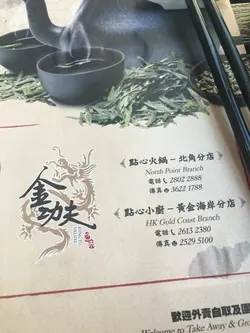 金功夫
點心火鍋 – 北角分店
North Point Branch
電話 2802 2888
傳真 3622 1788
點心小廚 – 黃金海岸分店
HK Gold Coast Branch
電話 2613 2380
傳真 2529 5100
歡迎外賣自取及
Welcome to Take Away &